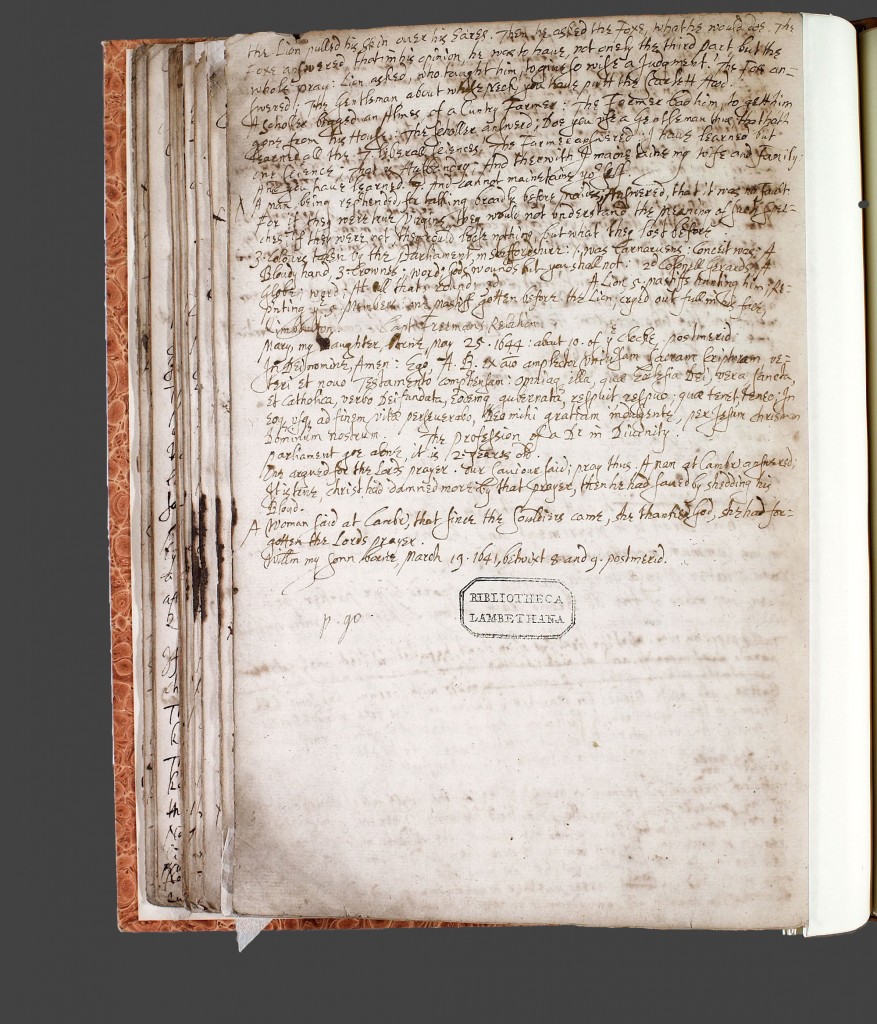 the Lion pulled his skin over his Eares. Then he asked the Foxe, what he would doe. The
Foxe answered that in his opinion he was to have, not onely the third part but the
whole pray: Lion asked, who taught him, to give so wise a Judgment. The Fox an=
swered; The Gentleman about whose neck, you have putt the Scarlett Hood.
A Scholler begged an Almes of a Cuntry Farmer: The Farmer bad him, to gett him
gone from his House: The scholler answerd; Doe you use a Gentleman thus too that
Learned all the 7 liberall sciences. The Farmer answered: I have learned but
one science, that is Husbandry: And therwith I maintaine my wife and Family:
And you have learned 7. And cannot maintaine
A man being reprehended, for talking broade before maides, Answered, that it was no fault
For if they were true Virgins they would not understand the meaning of such spee=
ches; if they were not they could loose nothing but what they lost before
3 Colours taken by the Parliament, in Staffordshire: 1. was Carnarvens: Conceit was; A
Bloudy hand, 3 Crownes; word; Gods wounds but you shall not: 2d Colonell Gerards; A
Globe; word; At all that's round; 3d A Lion, 5 mastifs hunting him; Re=
senting ye 5 Members: one mastiff gotten before the Lion, cryed out full in his face,
Kimbolton. Capt Freemans Relation.
Mary, my Daughter, borne, May 25. 1644: about 10. of ye Clocke, postmerid:
In Dei nomine, Amen: Ego, A. B. Ex aio amplector universam sacram scripturam ve=
teri et novo Testamento comprehensam: omniaq illa, quae Ecclesia Dei, vera sancta,
et Catholica, verbo Dei fundata, Eodemq gubernata, respuit respuo; quae tenet teneo; In
eoq usq ad finem vitae perseverabo, Deo mihi gratiam indulgente, per Jesum christum
Dominum nostrum. The profession of a Dr in Divinity.
Parliament goe alone, it is /2 yeares old.
One argued for the Lords prayer. Our Saviour said; pray thus. A man at Cambr: answered;
It is true, Christ had damned more by that prayer, then he had saved by shedding his
Bloud.
A Woman said at Cambr, that since the Souldiers came, she thanked God, she had for=
gotten the Lords prayer.
Willm my sonn borne, March 19. 1641, betwixt 8 and 9. postmerid.
BIBLIOTHECA
LAMBETHANA
p. 90